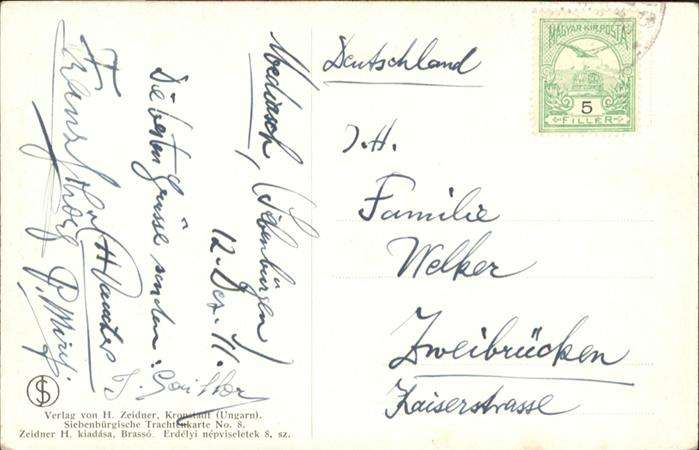 Mediasch, (Siebenbürgen)
12. Dez. 11.
Die besten Grüsse senden:
Franz
Deutschland
J. H.
Familie
Welker
Zweibrücken
Kaiserstrasse
MAGYAR·KIR·POSTA
5
FILLÉR
Verlag von H. Zeidner, Kronstadt (Ungarn).
Siebenbürgische Trachtenkarte No. 8.
Zeidner H. kiadása, Brassó. Erdélyi népviseletek 8. sz.